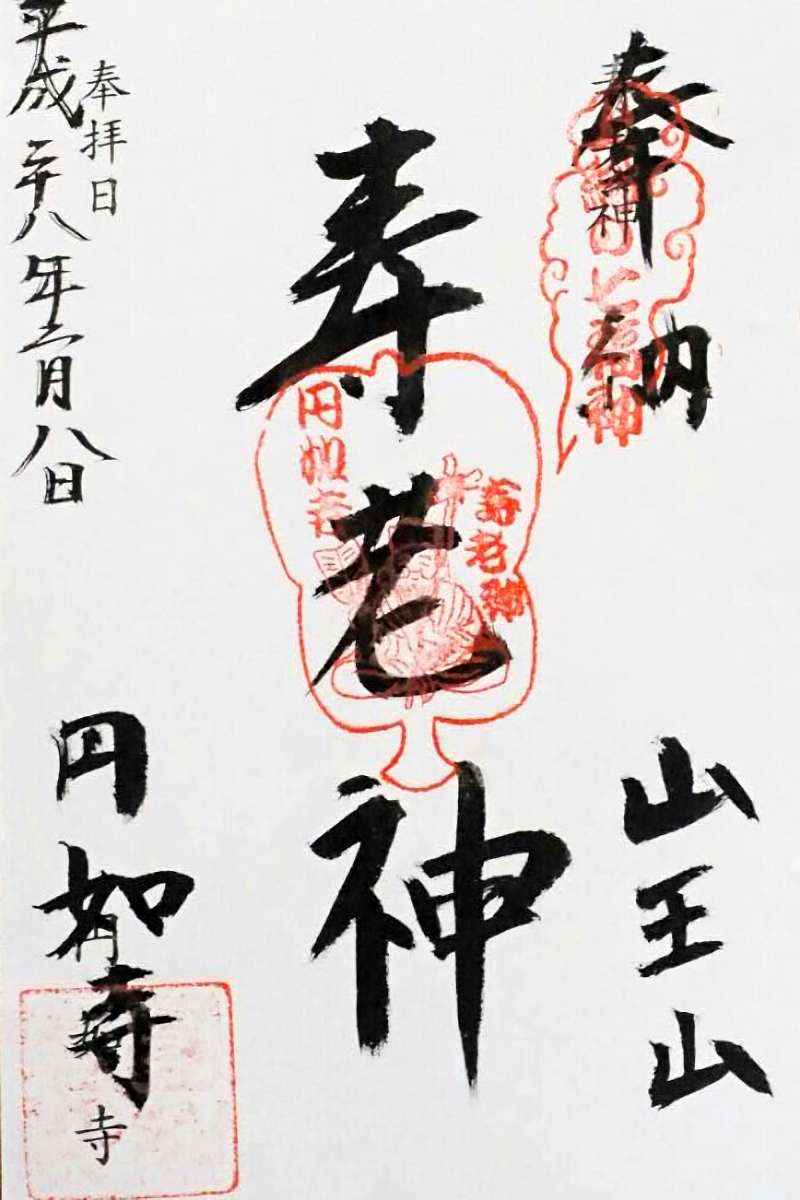 奉納
寿老神
七福神
山王山
寿老神
寿老神
円如寺
奉拝日
平成二十八年二月八日
円如寺
円如寺